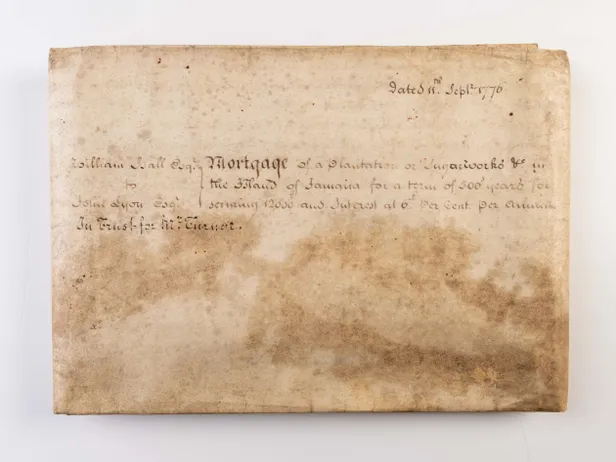 Dated 11th Septr. 1776
William Hall Esqr. Mortgage of a Plantation or Sugarworks &c in
to the Island of Jamaica for a term of 500 years for
John Lyon Esqr. securing 12000 and Interest at 6 Per Cent Per Annum
In Trust for Mr. Turner.